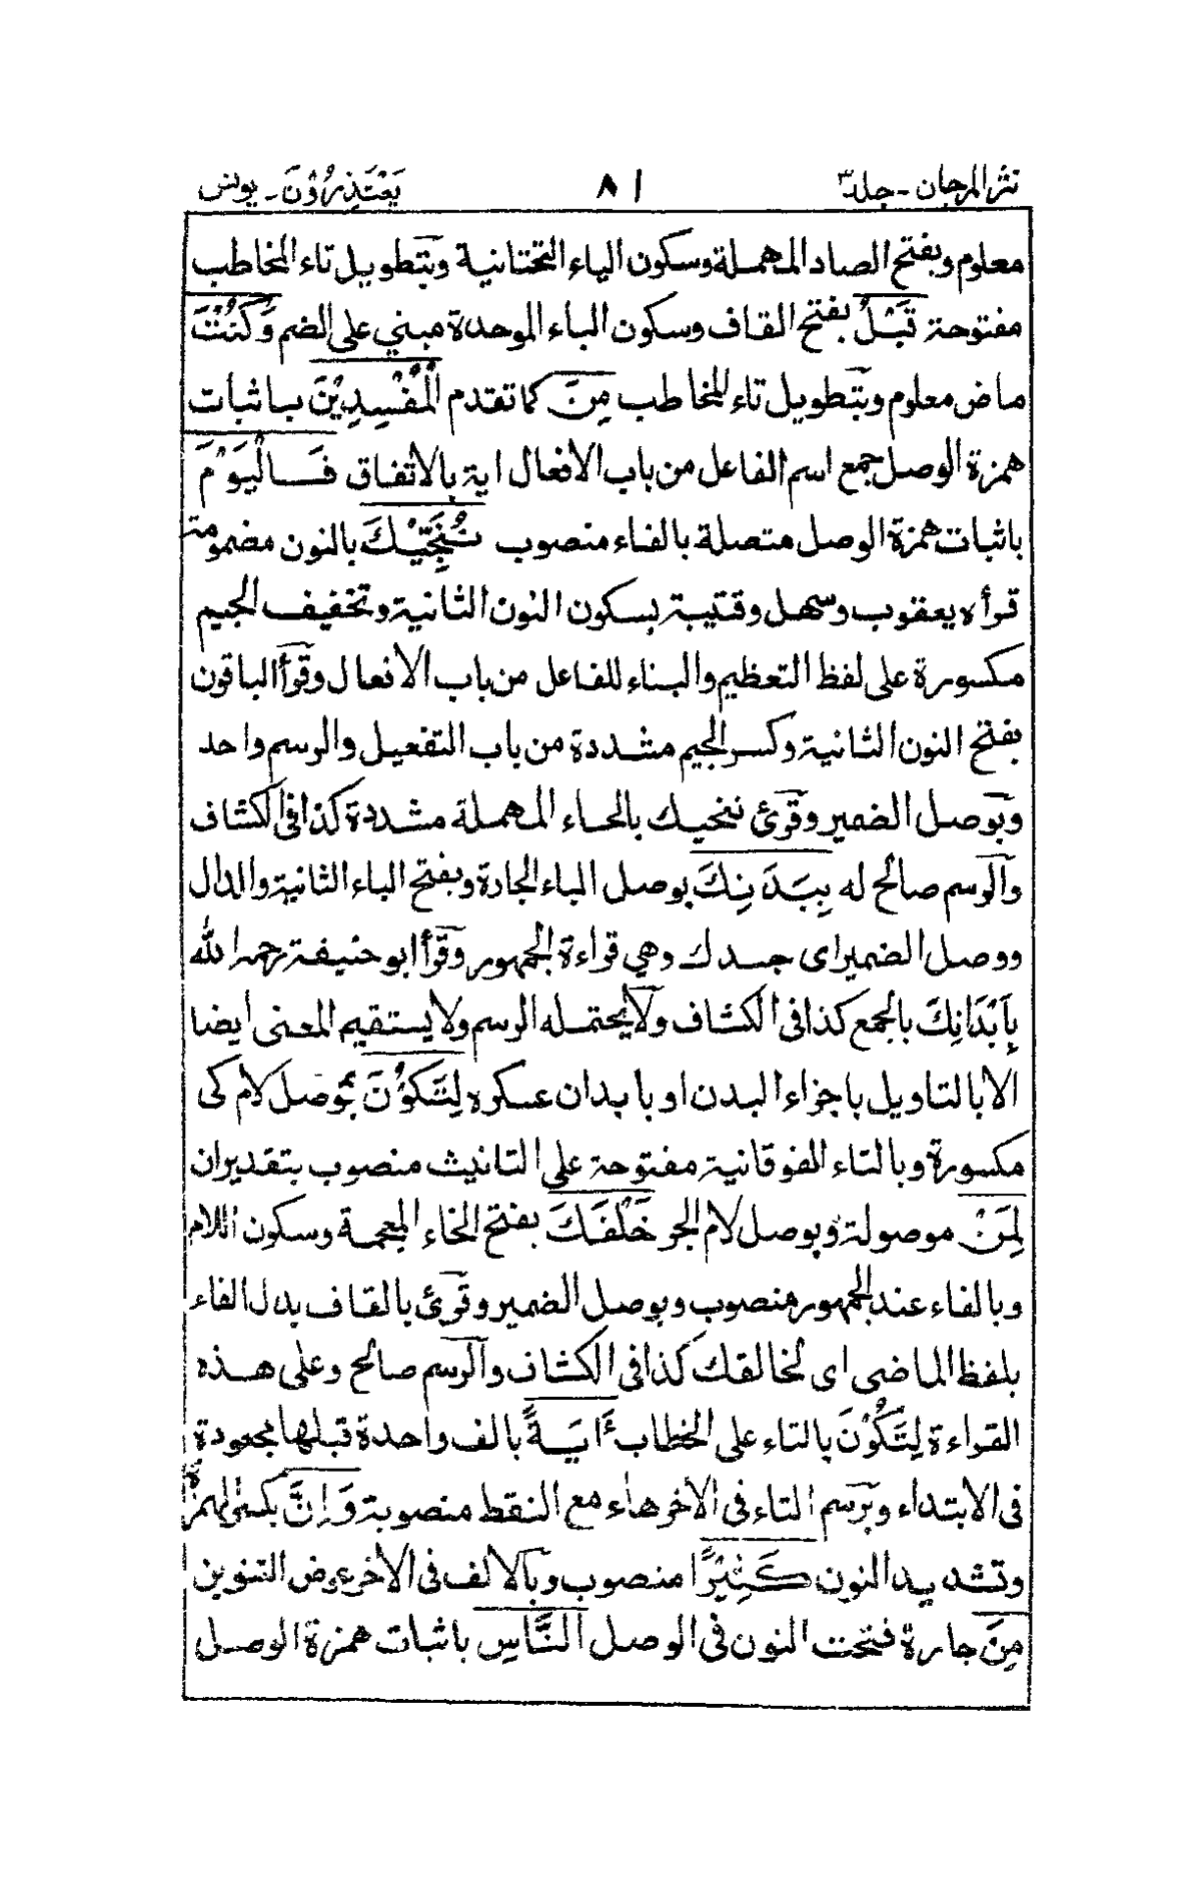 نثر المرجان - جلد ٣
٨١
يَعْتَذِرُوْنَ - يونس
معلوم وبفتح الصاد المهملة وسكون الياء التحتانية وبتطويل تاء المخاطب
مفتوحة قَبْلُ بفتح القاف وسكون الباء الموحدة مبني على الضم وَكُنْتَ
ماض معلوم وبتطويل تاء المخاطب مِنَ كما تقدم الْمُفْسِدِيْنَ باثبات
همزة الوصل جمع اسم الفاعل من باب الافعال اية بالاتفاق فَالْيَوْمَ
باثبات همزة الوصل متصلة بالفاء منصوب نُنَجِّيْكَ بالنون مضمومة
قرأه يعقوب وسهل وقتيبة بسكون النون الثانية وتخفيف الجيم
مكسورة على لفظ التعظيم والبناء للفاعل من باب الافعال وقرأ الباقون
بفتح النون الثانية وكسر الجيم مشددة من باب التفعيل والرسم واحد
وبوصل الضمير وقرئ ننحيك بالحاء المهملة مشددة كذا فى الكشاف
والرسم صالح له بِبَدَنِكَ بوصل الباء الجارة وبفتح الباء الثانية والدال
ووصل الضمير اى جسدك وهي قراءة الجمهور وقرأ ابو حنيفة رحمه الله
بِاَبْدَانِكَ بالجمع كذا فى الكشاف ولا يحتمله الرسم ولا يستقيم المعنى ايضا
الا بالتاويل باجزاء البدن او بابدان عسكره لِتَكُوْنَ بوصل لام كى
مكسورة وبالتاء الفوقانية مفتوحة على التانيث منصوب بتقدير ان
لِمَنْ موصولة وبوصل لام الجر خَلْفَكَ بفتح الخاء المعجمة وسكون اللام
وبالفاء عند الجمهور منصوب وبوصل الضمير وقرئ بالقاف بدل الفاء
بلفظ الماضى اى لخالقك كذا فى الكشاف والرسم صالح وعلى هذه
القراءة لِتَكُوْنَ بالتاء على الخطاب ءَايَةً بالف واحدة قبلها مجعودة
فى الابتداء وبرسم التاء فى الاخر هاء مع النقط منصوبة وَاِنَّ بكسر الهمزة
وتشديد النون كَثِيْرًا منصوب وبالالف فى الاخر عوض التنوين
مِنَ جارة فتحت النون فى الوصل النَّاسِ باثبات همزة الوصل